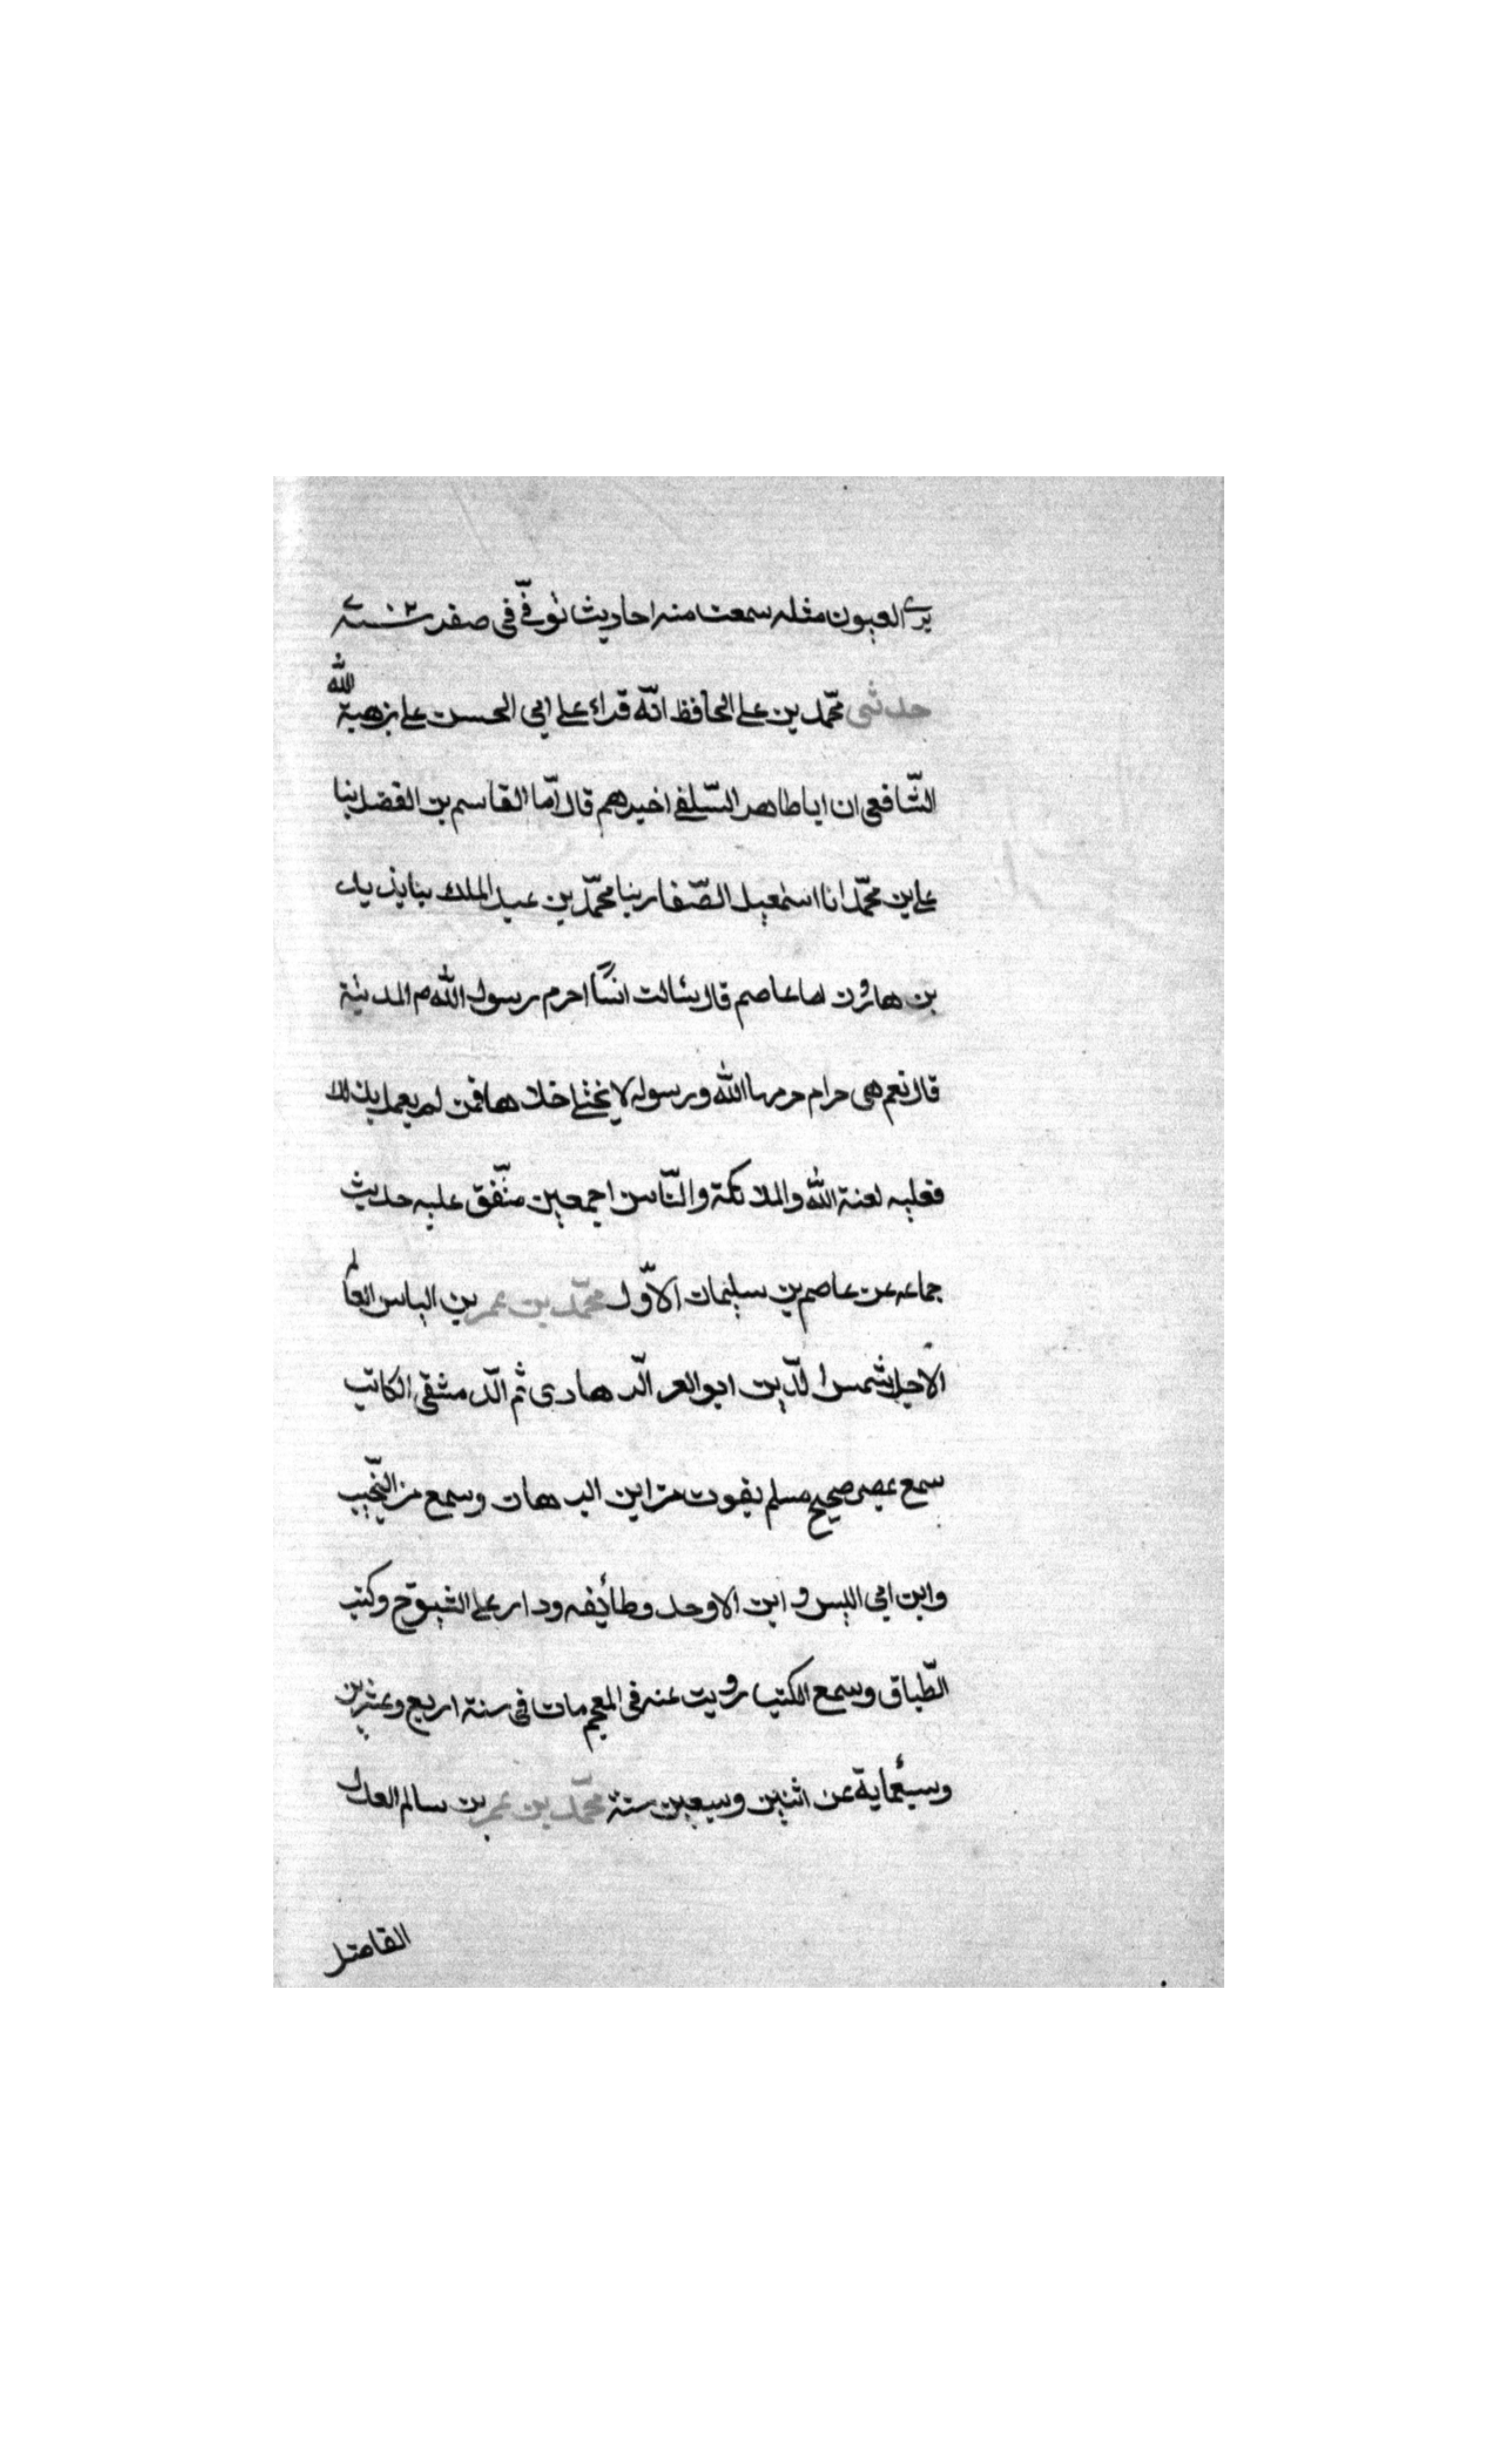 يرى العيون مثله سمعت منه احاديث توفّي في صفر سنة ٧٠٢
حدثني محمّد بن علي الحافظ انّه قراء على ابي الحسن علي بن هبة الله
الشّافعي ان ابا طاهر السّلفي اخبرهم قال انا القاسم بن الفضل بنا
علي بن محمّد انا اسمعيل الصّفار بنا محمّد بن عبد الملك بنا يزيد
بن هارون اما عاصم قال سئالت انسًا احرم رسول الله ص المدينة
قال نعم هي حرام حرمها الله ورسوله لا يختلي خلاها فمن لم يعمل بذلك
فعليه لعنة الله والملائكة والنّاس اجمعين متّفق عليه حديث
جماعه عن عاصم بن سليمان الاوّل محمّد بن عمر بن الياس العالم
الاجل شمس الدّين ابو العز الرّهاوى ثم الدّمشقي الكاتب
سمع بمصر صحيح مسلم بفوت من ابن البرهان وسمع من النّجيب
وابن ابي اليسر و ابن الاوحد وطائفه ودار على الشيوخ وكتب
الطّباق وسمع الكتب رويت عنه في المعجم مات في سنة اربع وعشرين
وسبعماية عن اثنين وسبعين سنة محمّد بن عمر بن سالم العدل
الفاضل